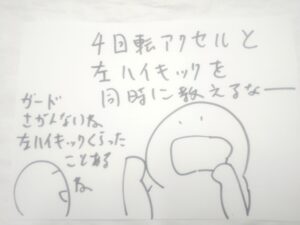 4回転アクセルと
左ハイキックを
同時に教えるなー
ガード
さがんないね
左ハイキックくらった
ことある
ね